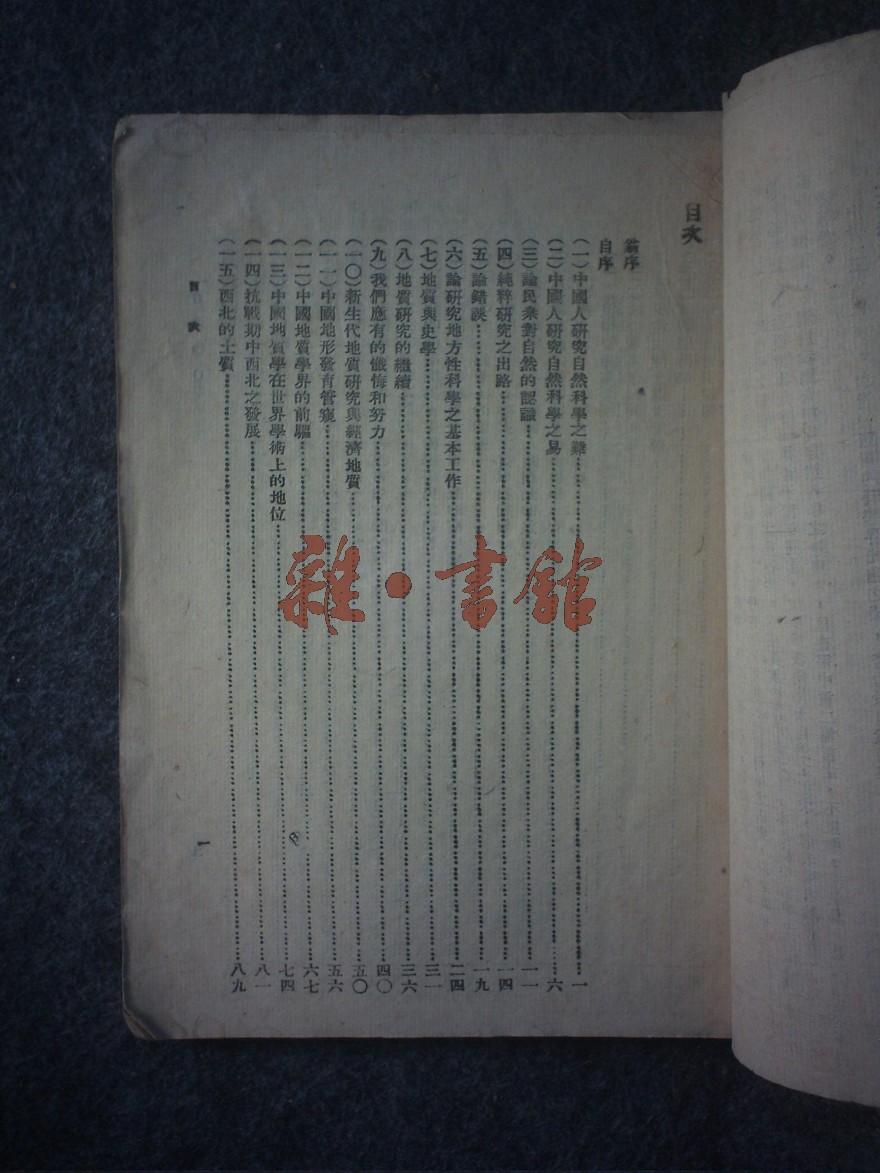 目次
翁序
自序
(一)中國人研究自然科學之難…………一
(二)中國人研究自然科學之易…………六
(三)論民衆對自然的認識…………一一
(四)純粹研究之出路…………一四
(五)論錯誤…………一九
(六)論研究地方性科學之基本工作…………二四
(七)地質與史學…………三一
(八)地質研究的繼續…………三六
(九)我們應有的懺悔和努力…………四〇
(一〇)新生代地質研究與經濟地質…………五〇
(一一)中國地形發育管窺…………五六
(一二)中國地質學界的前驅…………六七
(一三)中國地質學在世界學術上的地位…………七四
(一四)抗戰期中西北之發展…………八一
(一五)西北的土質…………八九
目次
一
雜·書館